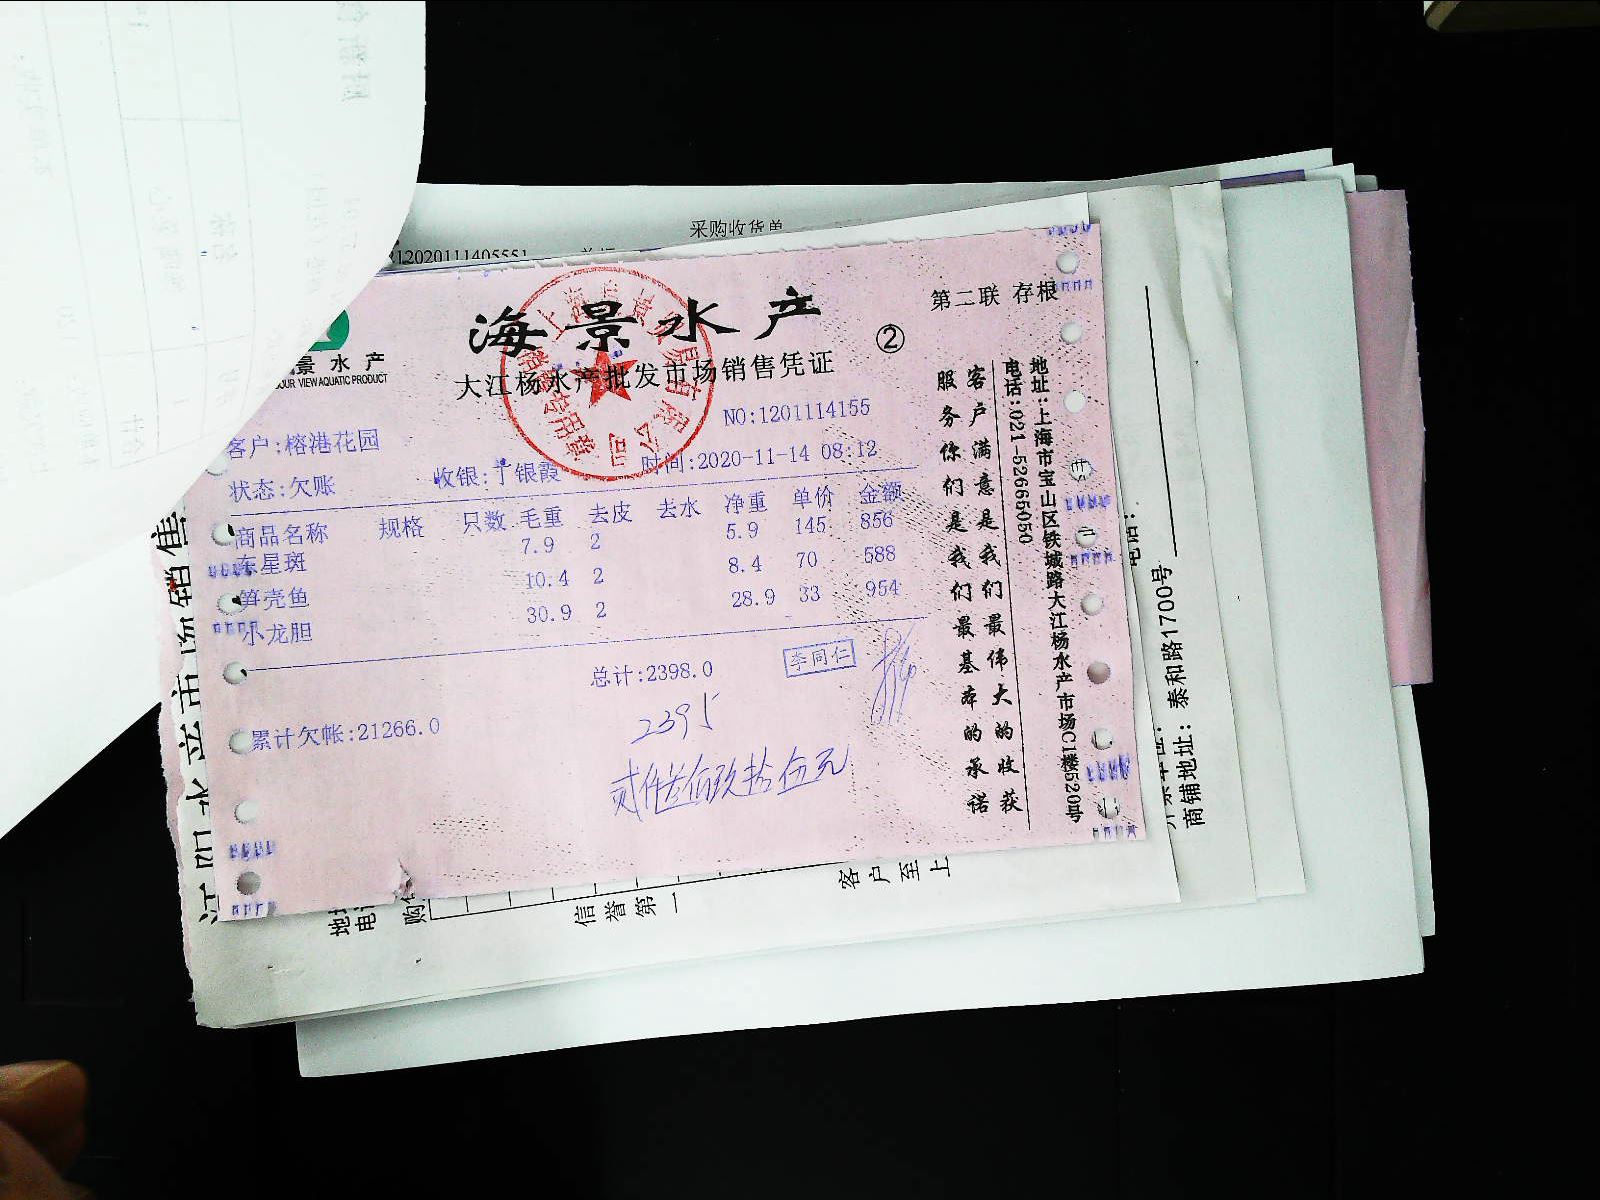 采购收货单
31202011405551
第二联 存根
海景水产
②
大江杨水产批发市场销售凭证
景水产
OUR VIEW AQUATIC PRODUCT
NO:1201114155
客户:榕港花园
收银:于银霞
时间:2020-11-14 08:12
状态:欠账
商品名称 规格 只数 毛重 去皮 去水 净重 单价 金额
东星斑 7.9 2 5.9 145 856
笋壳鱼 10.4 2 8.4 70 588
小龙胆 30.9 2 28.9 33 954
总计:2398.0
李同仁
累计欠帐:21266.0
2395
贰仟叁佰玖拾伍元
客户满意是我们最伟大的收获
服务你们是我们最基本的承诺
地址:上海市宝山区铁城路大江杨水产市场C1楼520号
电话:021-52665050
商铺地址:泰和路1700号
信誉第一
客户至上
地址
电话